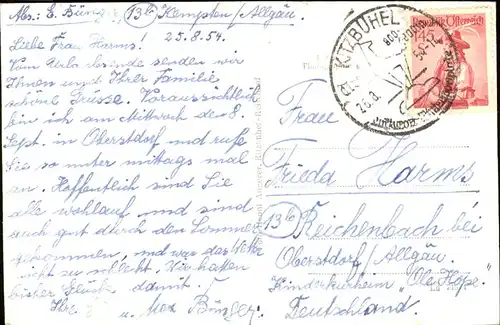 Abs.: E. Bünger, 13b Kempten/Allgäu.
25.8.54.
Liebe Frau Harms!
Vom Urlaub sende wir
Ihnen und Ihrer Familie
schöne Grüsse. Voraussichtlich
bin ich am Mittwoch den 8.
Sept. in Oberstdorf und rufe
Sie so unter mittags mal
an. Hoffentlich sind Sie
alle wohlauf und sind
auch gut durch den Sommer
gekommen, und war das Wetter
nicht zu schlecht. Wir hatten
bisher Glück damit!
Ihre
u. Max Bünger.
KITZBÜHEL
800-2000
Republik Österreich
1.45
Frau
Frieda Harms
13b Reichenbach bei
Oberstdorf/Allgäu.
Kinderkurheim "Ole Höpe"
Deutschland.